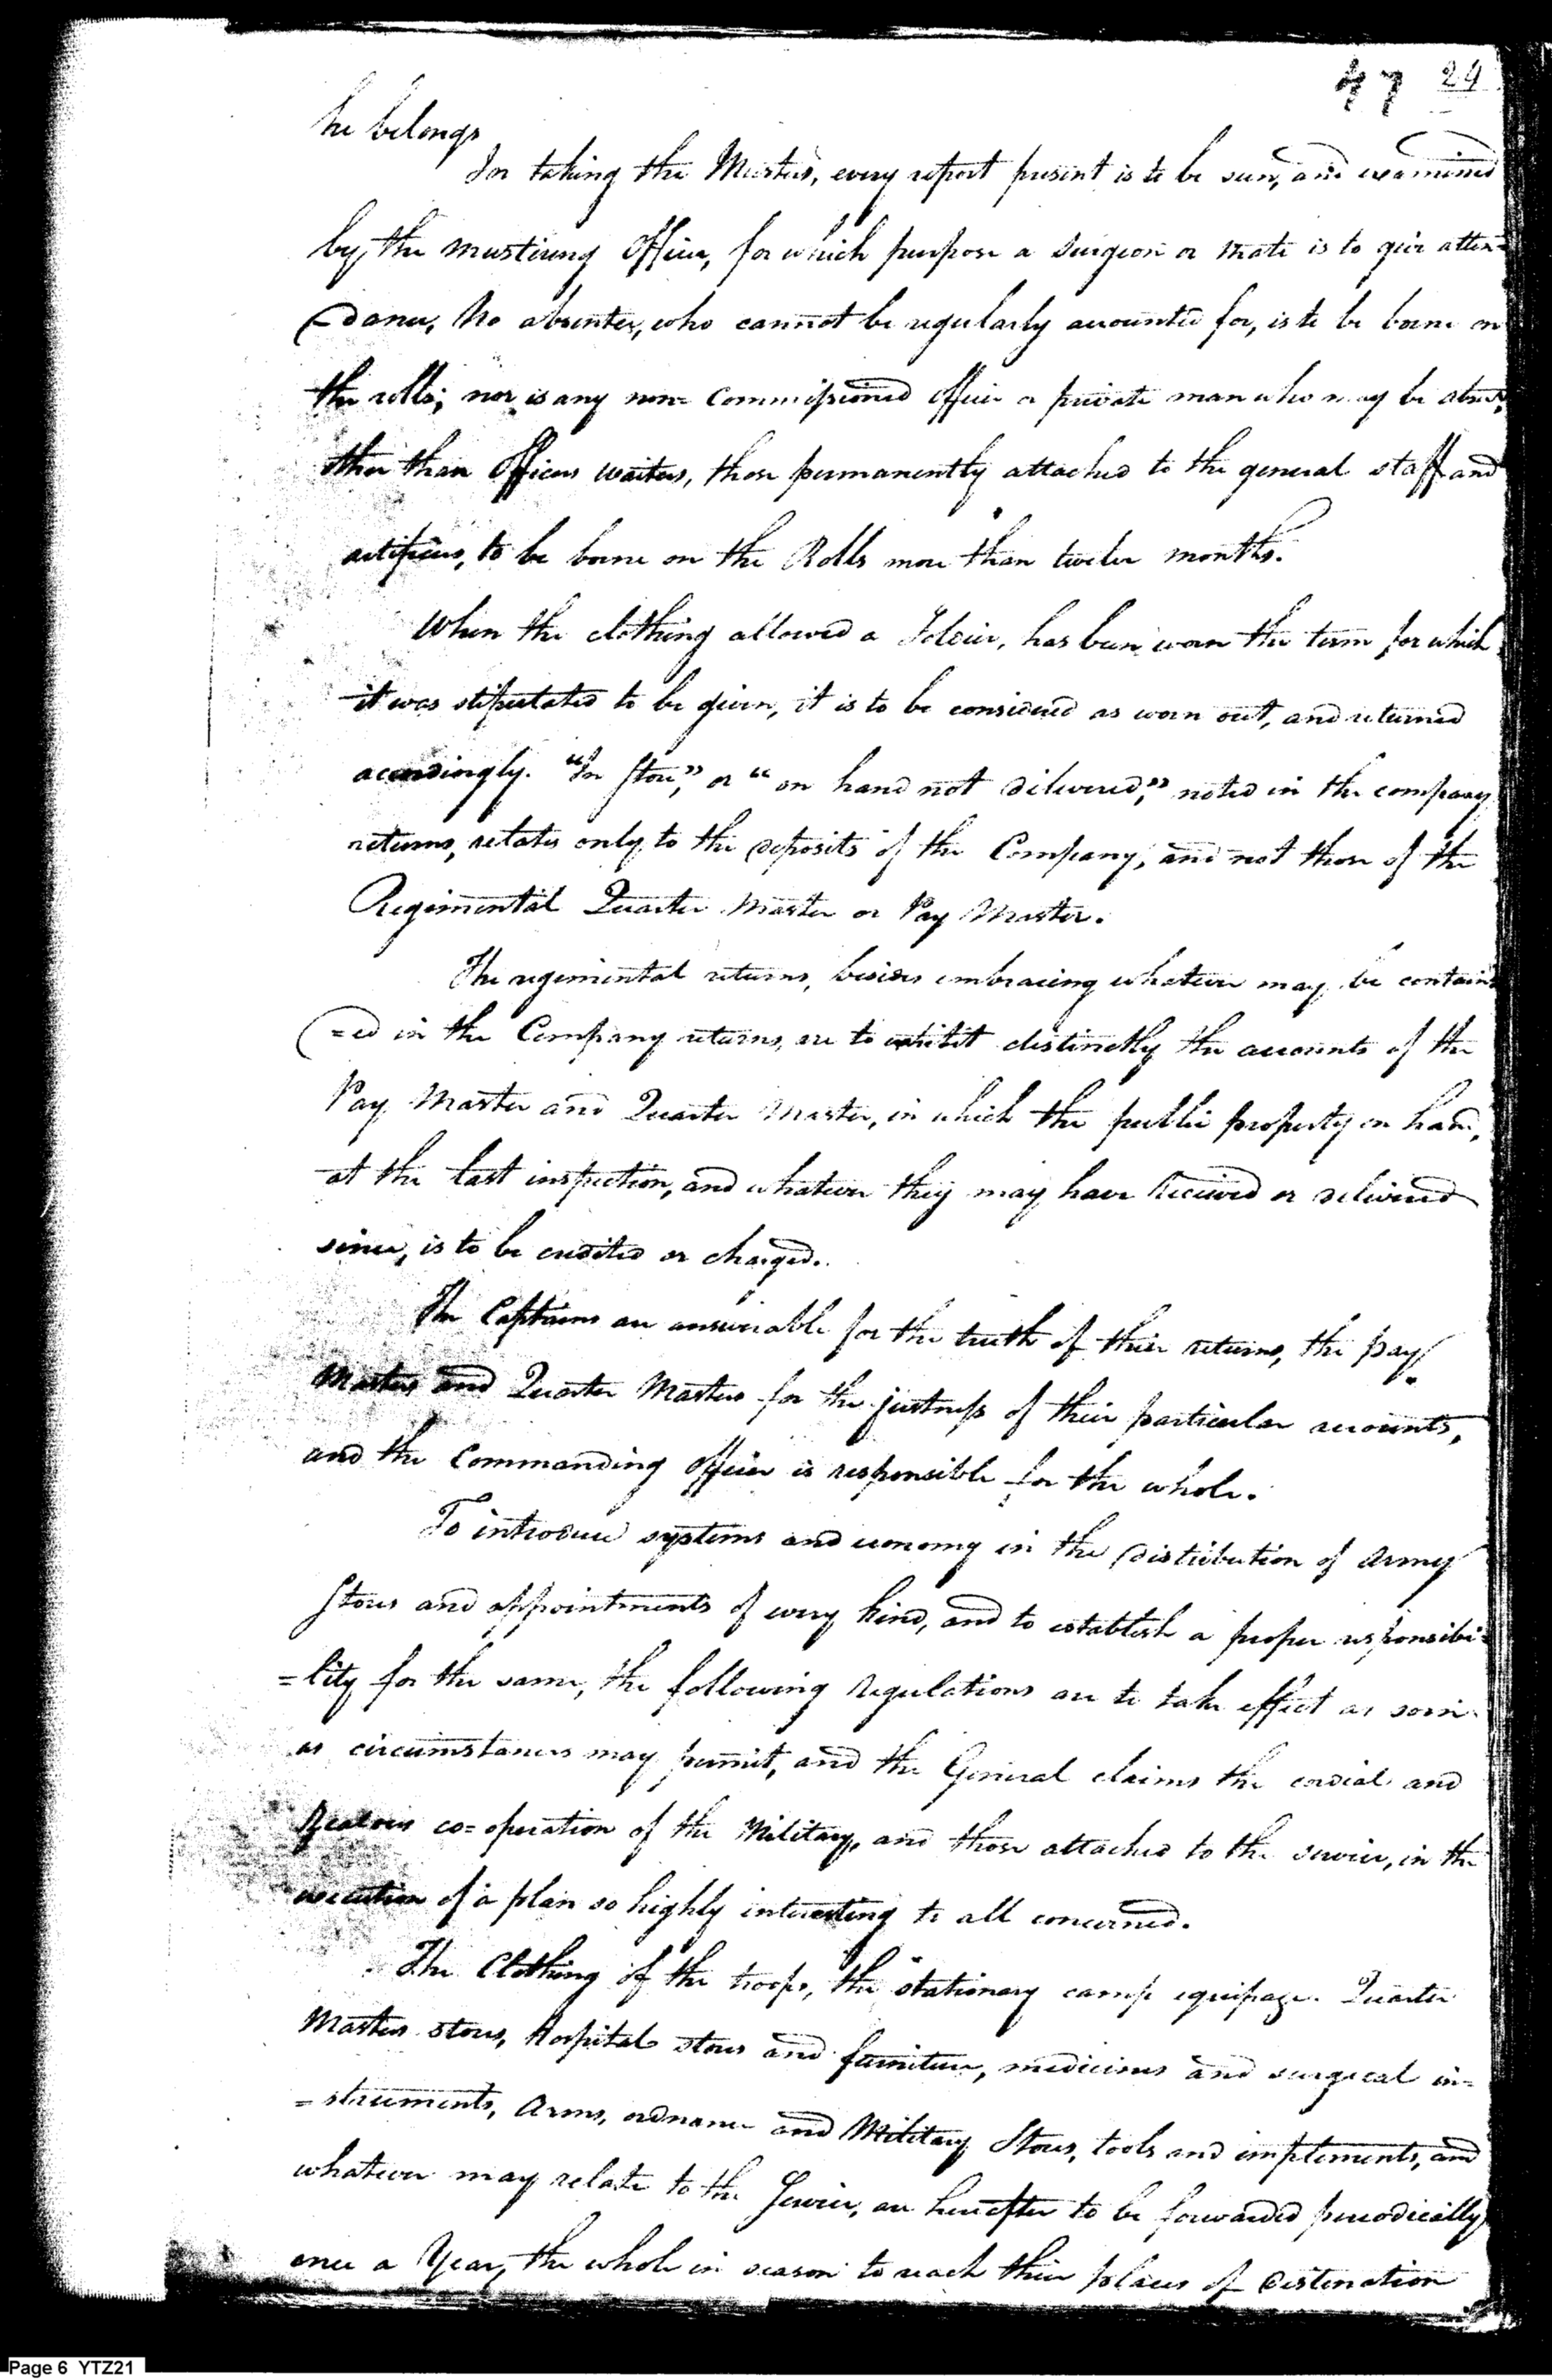 47 29
he belongs
In taking the Musters, every report present is to be seen, and examined
by the mustering Officer, for which purpose a Surgeon or Mate is to give atten=
=dance, No absentee, who cannot be regularly accounted for, is to be borne on
the rolls; nor is any non=commissioned officer or private man who may be absent,
other than Officers waiters, those permanently attached to the general staff and
artificers, to be borne on the Rolls more than twelve months.
When the clothing allowed a Soldier, has been worn the term for which
it was stipulated to be given, it is to be considered as worn out, and returned
accordingly. "In Store", or "on hand not delivered," noted in the company
returns, relates only to the deposits of the Company, and not those of the
Regimental Quarter Master or Pay Master.
The regimental returns, besides embracing whatever may be contain=
=ed in the Company returns, are to exhibit distinctly the accounts of the
Pay Master and Quarter Master, in which the public property on hand,
at the last inspection, and whatever they may have Received or delivered
since, is to be credited or charged.
The Captains are answerable for the truth of their returns, the pay
Masters and Quarter Masters for the justness of their particular accounts,
and the Commanding officer is responsible for the whole.
To introduce systems and economy in the distribution of Army
Stores and appointments of every kind, and to establish a proper responsibi=
=lity for the same, the following Regulations are to take effect as soon
as circumstances may permit, and the General claims the cordial and
Zealous co=operation of the Military, and those attached to the service, in the
execution of a plan so highly interesting to all concerned.
The Clothing of the troops, the stationary camp equipage. Quarter
Masters stores, Hospital stores and furniture, medicines and surgical in=
=struments, Arms, ordnance and Military Stores, tools and implements, and
whatever may relate to the Service, are hereafter to be forwarded periodically
once a Year, the whole in season to reach their places of Destination
Page 6 YTZ21